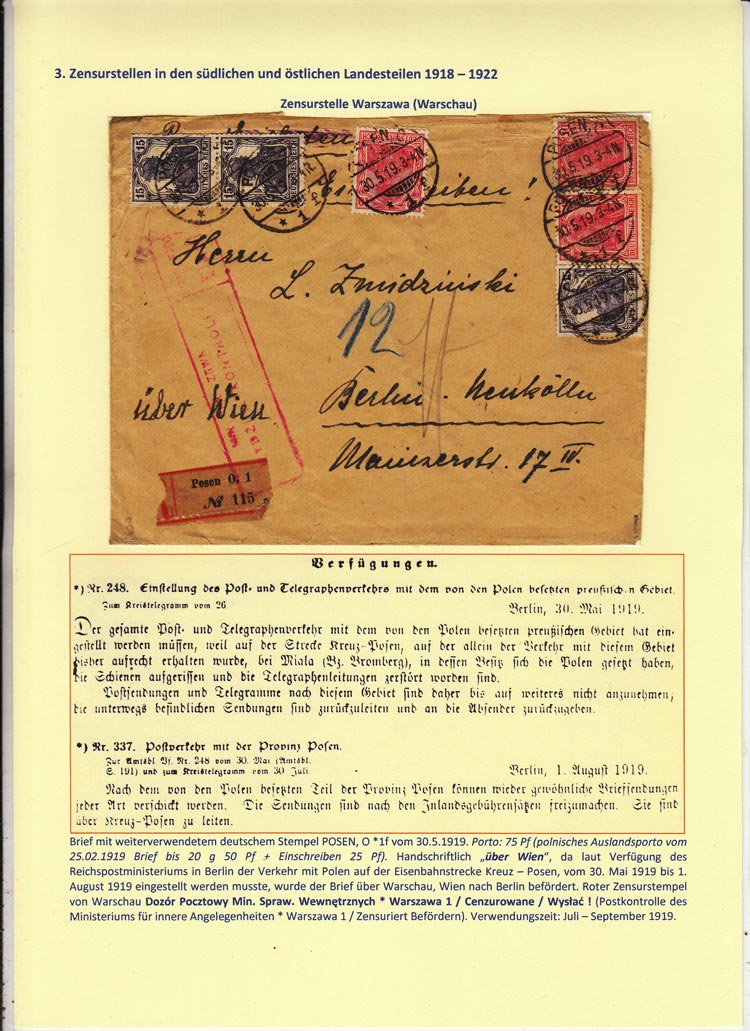 3. Zensurstellen in den südlichen und östlichen Landesteilen 1918 – 1922
Zensurstelle Warszawa (Warschau)
15 15
DEUTSCHES REICH
POSEN, O.1
30.5.19.3-4N.
* 1 f
Einschreiben!
Herrn
L. Zmidziński
12
über Wien
Berlin-Neukölln
Mainzerstr. 17 IV.
Posen O. 1
№ 115
Verfügungen.
*) Nr. 248. Einstellung des Post- und Telegraphenverkehrs mit dem von den Polen besetzten preußischen Gebiet.
Zum Kreistelegramm vom 26.
Berlin, 30. Mai 1919.
Der gesamte Post- und Telegraphenverkehr mit dem von den Polen besetzten preußischen Gebiet hat ein-
gestellt werden müssen, weil auf der Strecke Kreuz-Posen, auf der allein der Verkehr mit diesem Gebiet
bisher aufrecht erhalten wurde, bei Miala (Bz. Bromberg), in dessen Besitz sich die Polen gesetzt haben,
die Schienen aufgerissen und die Telegraphenleitungen zerstört worden sind.
Postsendungen und Telegramme nach diesem Gebiet sind daher bis auf weiteres nicht anzunehmen;
die unterwegs befindlichen Sendungen sind zurückzuleiten und an die Absender zurückzugeben.
*) Nr. 337. Postverkehr mit der Provinz Posen.
Zur Amtsbl. Vf. Nr. 248 vom 30. Mai (Amtsbl.
S. 191) und zum Kreistelegramm vom 30 Juli.
Berlin, 1. August 1919.
Nach dem von den Polen besetzten Teil der Provinz Posen können wieder gewöhnliche Briefsendungen
jeder Art verschickt werden. Die Sendungen sind nach den Inlandsgebührensätzen freizumachen. Sie sind
über Kreuz-Posen zu leiten.
Brief mit weiterverwendetem deutschem Stempel POSEN, O *1f vom 30.5.1919. Porto: 75 Pf (polnisches Auslandsporto vom
25.02.1919 Brief bis 20 g 50 Pf + Einschreiben 25 Pf). Handschriftlich „über Wien“, da laut Verfügung des
Reichspostministeriums in Berlin der Verkehr mit Polen auf der Eisenbahnstrecke Kreuz – Posen, vom 30. Mai 1919 bis 1.
August 1919 eingestellt werden musste, wurde der Brief über Warschau, Wien nach Berlin befördert. Roter Zensurstempel
von Warschau Dozór Pocztowy Min. Spraw. Wewnętrznych * Warszawa 1 / Cenzurowane / Wysłać ! (Postkontrolle des
Ministeriums für innere Angelegenheiten * Warszawa 1 / Zensuriert Befördern). Verwendungszeit: Juli – September 1919.